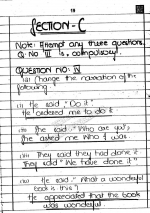 18
SECTION-C
Note: Attempt any three questions.
Q. No III is compulsory.
QUESTION NO: IV
(i) Change the narration of the
following
(i) He said "Do it".
He ordered me to do it.
(ii) She said, "Who are you"
She asked me who I was.
(iii) They said they had done it
They said "We have done it"
(iv) He said "What a wonderful
book is this"!
He appreciated that the book
was wonderful.